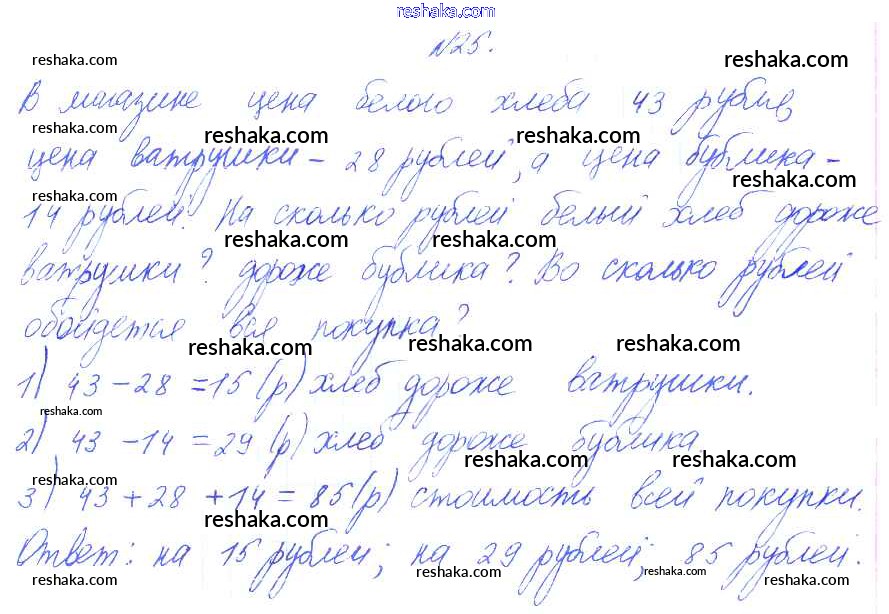 reshaka.com
№25.
reshaka.com reshaka.com
В магазине цена белого хлеба 43 рубля,
reshaka.com reshaka.com reshaka.com
цена ватрушки - 28 рублей, а цена бублика -
reshaka.com reshaka.com
14 рублей. На сколько рублей белый хлеб дороже
reshaka.com reshaka.com
ватрушки? дороже бублика? Во сколько рублей
обойдется вся покупка?
reshaka.com reshaka.com reshaka.com
1) 43 - 28 = 15 (р) хлеб дороже ватрушки.
reshaka.com
2) 43 - 14 = 29 (р) хлеб дороже бублика
reshaka.com reshaka.com reshaka.com
3) 43 + 28 + 14 = 85 (р) стоимость всей покупки.
reshaka.com
Ответ: на 15 рублей; на 29 рублей; 85 рублей.
reshaka.com reshaka.com reshaka.com reshaka.com